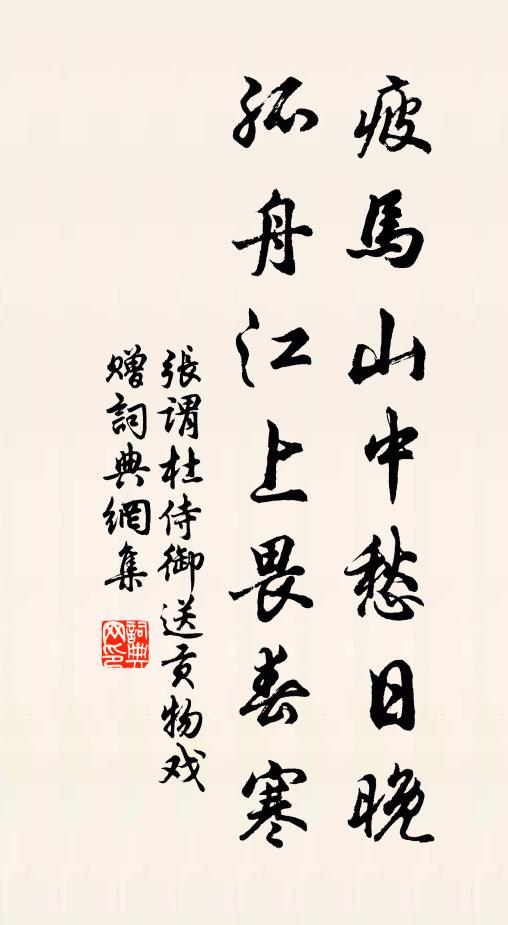 疲馬山中愁日晚
孤舟江上畏春寒
張謂杜侍御送貢物戏
赠詞典網集
詞典
网印